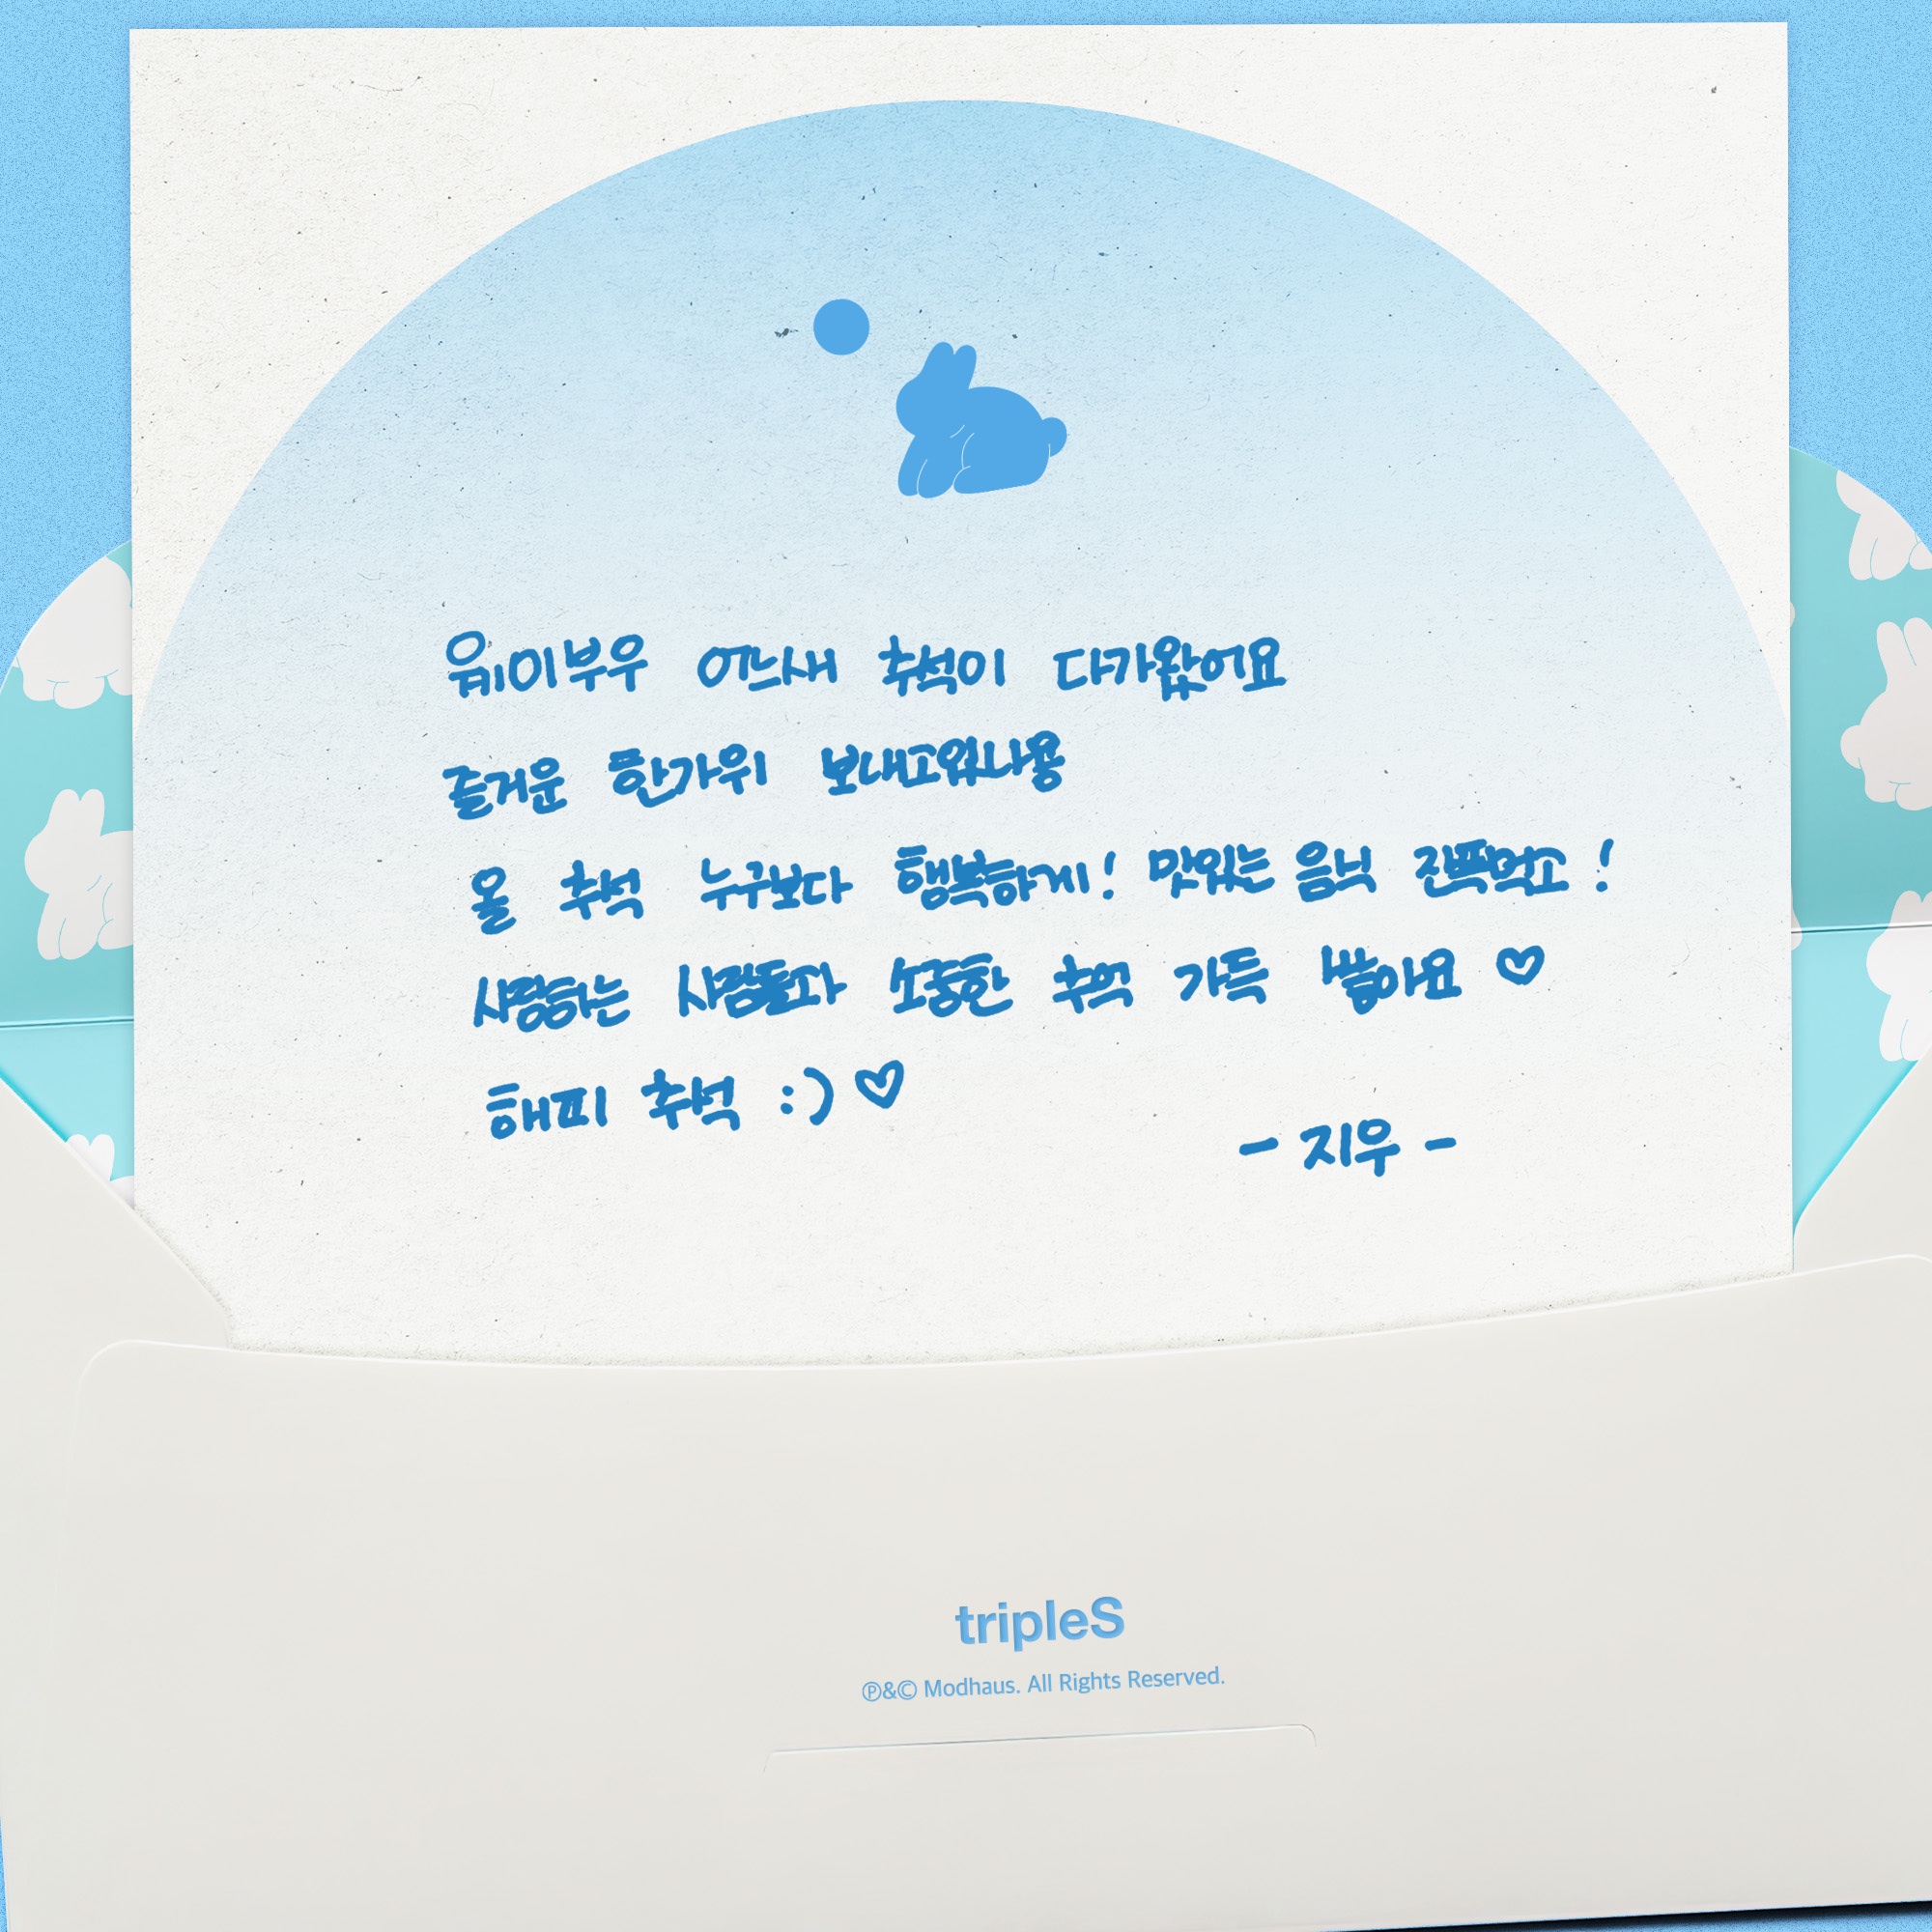 웨이부우 어느새 추석이 다가왔어요
즐거운 한가위 보내고있나용
올 추석 누구보다 행복하게! 맛있는 음식 잔뜩먹고!
사랑하는 사람들과 소중한 추억 가득 쌓아요 ♡
해피 추석 :) ♡
- 지우 -
tripleS
℗&© Modhaus. All Rights Reserved.